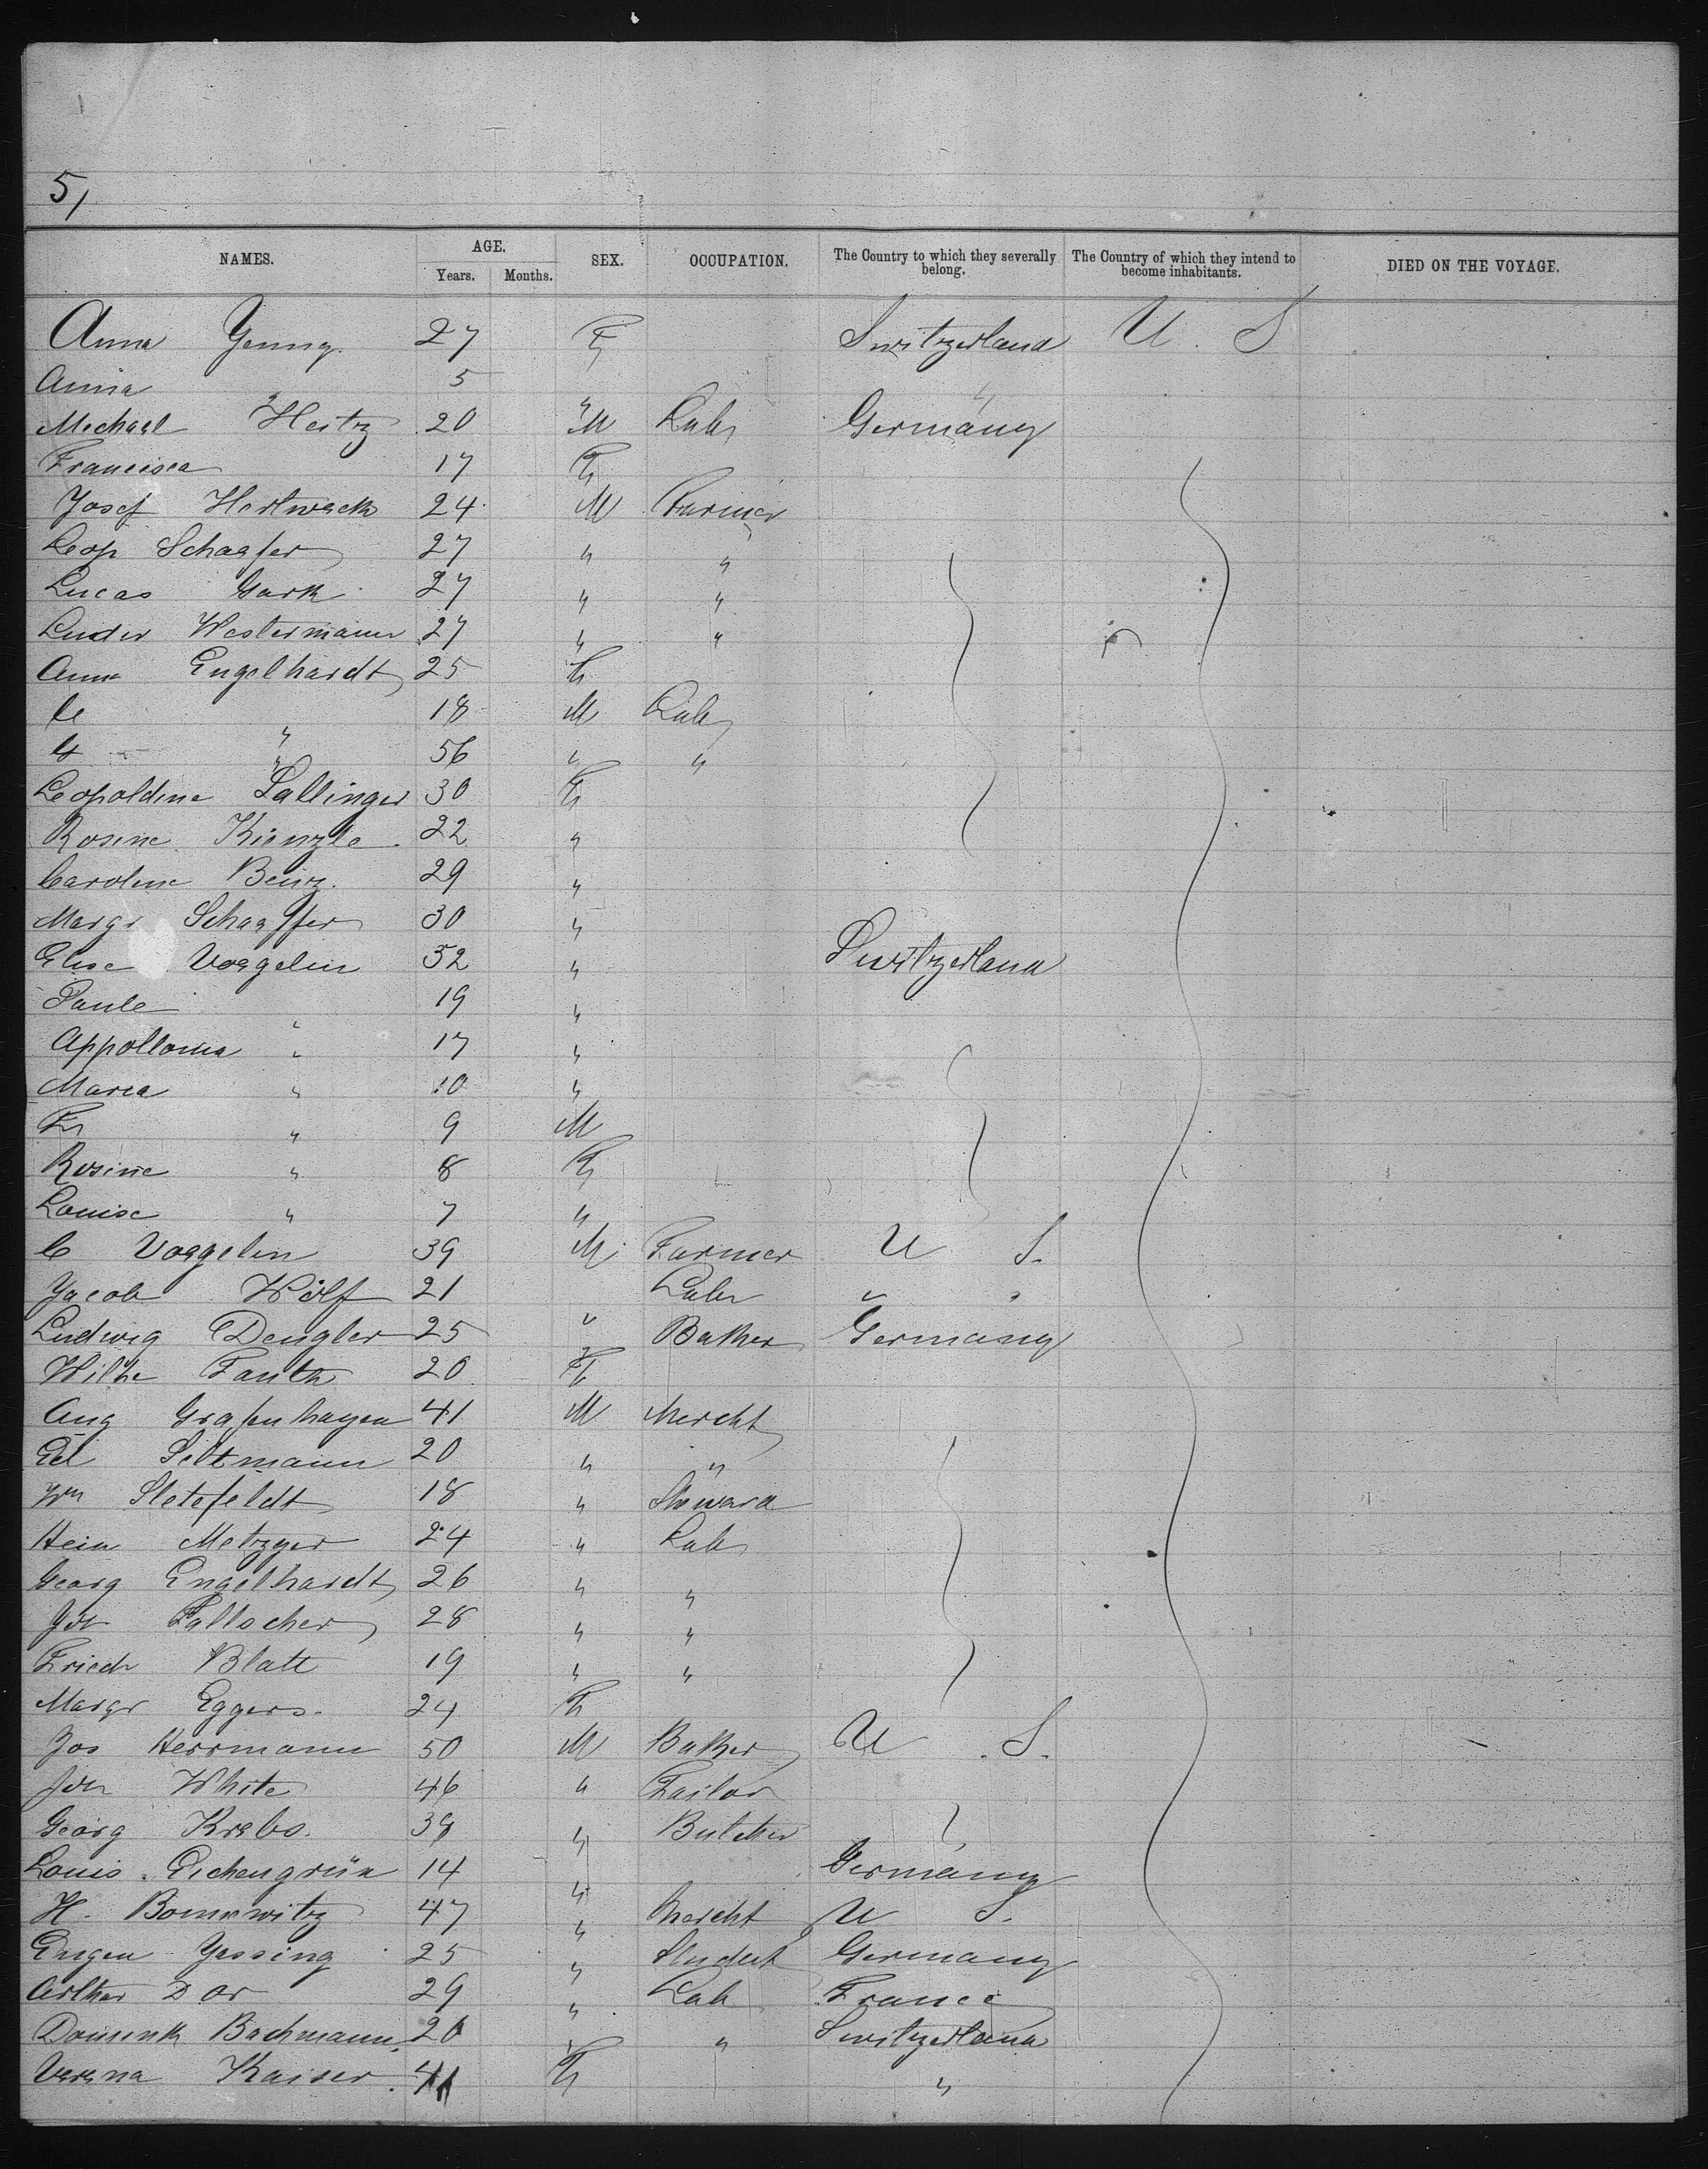 5,
NAMES. AGE. SEX. OCCUPATION. The Country to which they severally belong. The Country of which they intend to become inhabitants. DIED ON THE VOYAGE.
Years. Months.
Anna Yenny. 27 F Switzerland U. S
Anna " 5 "
Michael Heitz 20 M Labr Germany
Francisca 17 F
Josef Hertweck 24 M Farmer
Leop Schaefer 27 " "
Lucas Gark 27 " "
Luder Westermann 27 " "
Anna Engelhardt 25 F
C " 18 M Labr
G " 56 " "
Leopoldine Sallinger 30 F
Rosine Kienzle 22 "
Caroline Beinz. 29 "
Margr Schaeffer 30 "
Elise Voegelin 52 " Switzerland
Paule " 19 "
Appollonia " 17 "
Maria " 10 "
Fr " 9 M
Rosine " 8 F
Louise " 7 "
C Voegelin 39 M Farmer U S.
Jacob Wolf 21 " Labr " "
Ludwig Dengler 25 " Baker Germany
Wilhe Fauth 20 F
Aug Grafenhagen 41 M Mercht
Ed Seltmann 20 " "
Wm Sletefeldt 18 " Steward
Hein Metzger 24 " Labr
Georg Engelhardt 26 " "
Joh Fallscher 28 " "
Friedr Blatt 19 " "
Margr Eggers. 24 F
Jos Herrmann 50 M Baker U. S.
Joh White 46 " Tailor
Georg Krebs. 39 " Butcher
Louis Eichengrün 14 " Germany
H. Bomewitz 47 " Mercht U S.
Eugen Yessing 25 " Student Germany
Arthur Dor 29 " Lab France
Dominik Bachmann. 20 " " Switzerland
Verena Kaiser. 41 F "